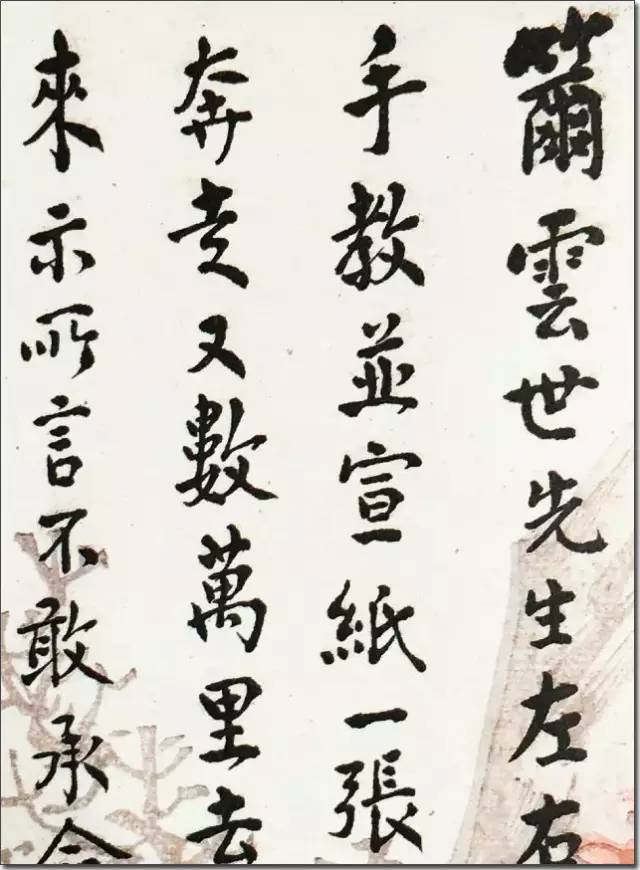 籋雲世先生左右
手教並宣紙一張
奔走又數萬里去
來示所言不敢承